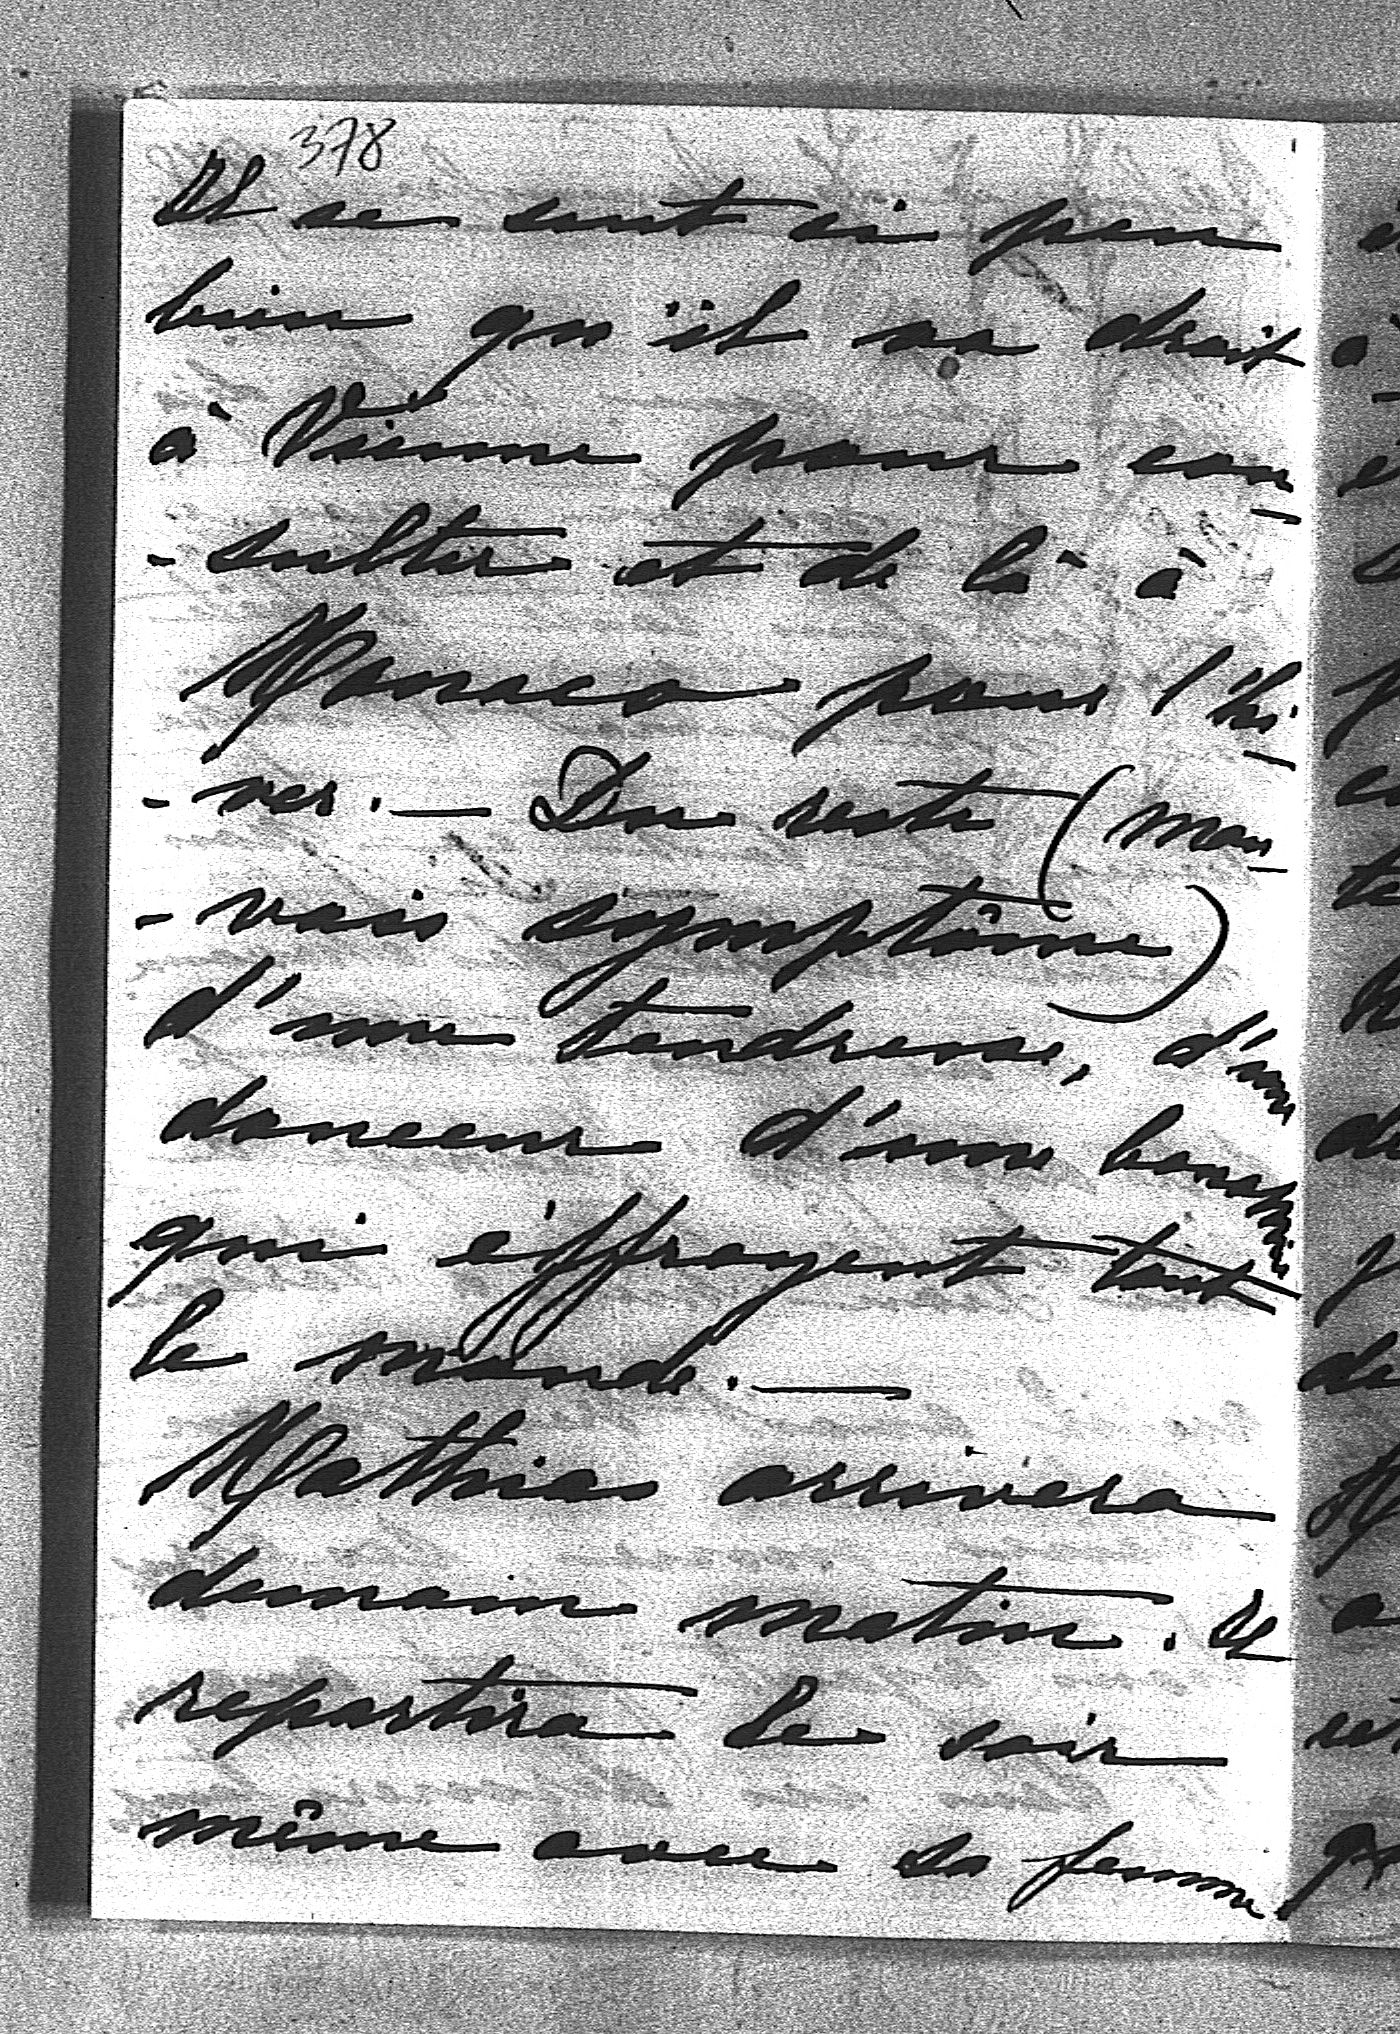 378
Il se sent si peu
bien qu'il va droit
à Vienne pour con
- sulter et de là à
Monaco pour l'hi-
- ver. — Du reste (mau
- vais symptôme)
d'une tendresse, d'une
douceur d'une bonhomie
qui éffrayent tout
le monde. —
Mathias arrivera
demain matin. Il
repartira le soir
même avec sa femme,